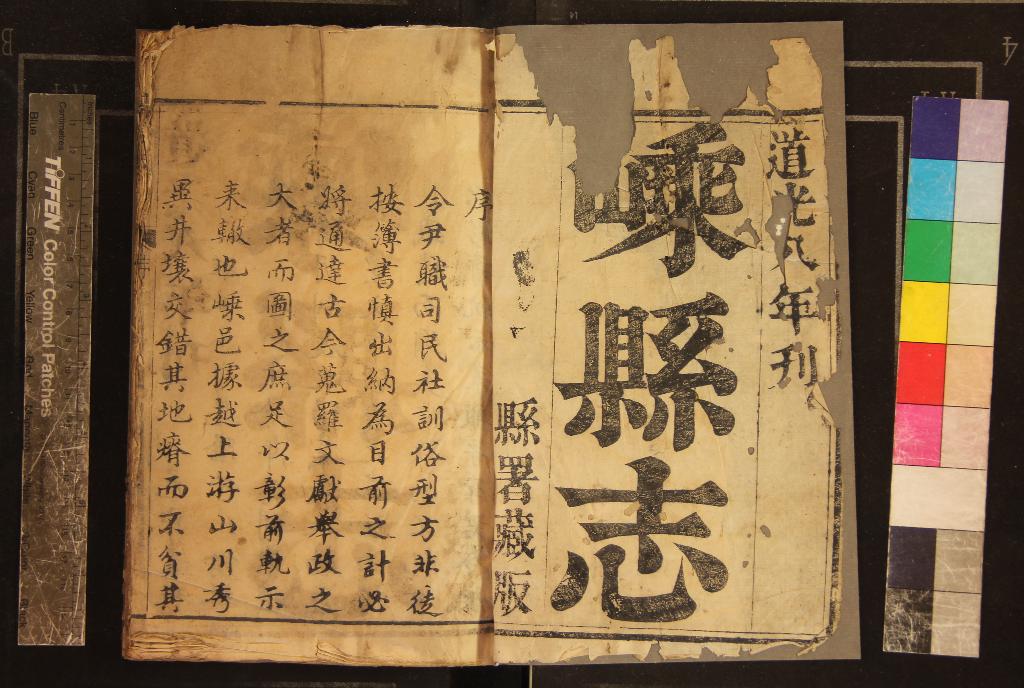 道光八年刊
嵊縣志
縣署藏版
序
令尹職司民社訓俗型方非徒
按簿書慎出納為目前之計必
將通達古今蒐羅文獻舉政之
大者而圖之庶足以彰前軌示
来轍也嵊邑據越上游山川秀
異井壤交錯其地瘠而不貧其
TIFFEN Color Control Patches
Centimetres
Blue
Cyan
Green
Yellow
Red
Magenta
B
4